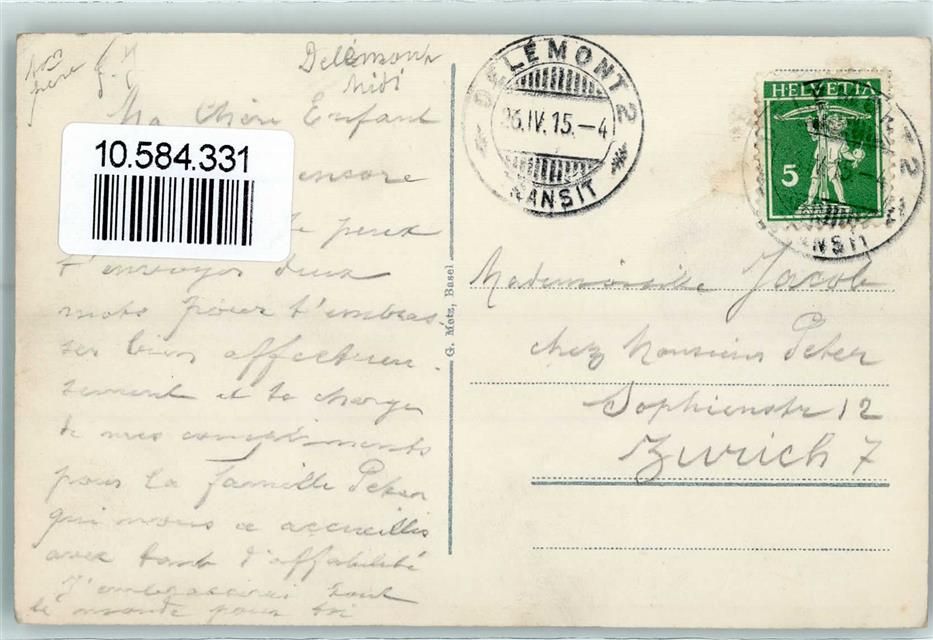 Delémont
Midi
Ma Chère Enfant
10.584.331
encore
peux
t'envoyer deux
mots pour t'embras-
ser bien affectueu-
sement et te charge
de mes compliments
pour la famille Peter
qui nous a accueillis
avec tant d'affabilité
J'embrasserai tout
le monde pour toi
G. Metz, Basel
DELÉMONT 2
26.IV.15.-4
TRANSIT
HELVETIA
5
Mademoiselle Jacob
chez Monsieur Peter
Sophienstr 12
Zurich 7